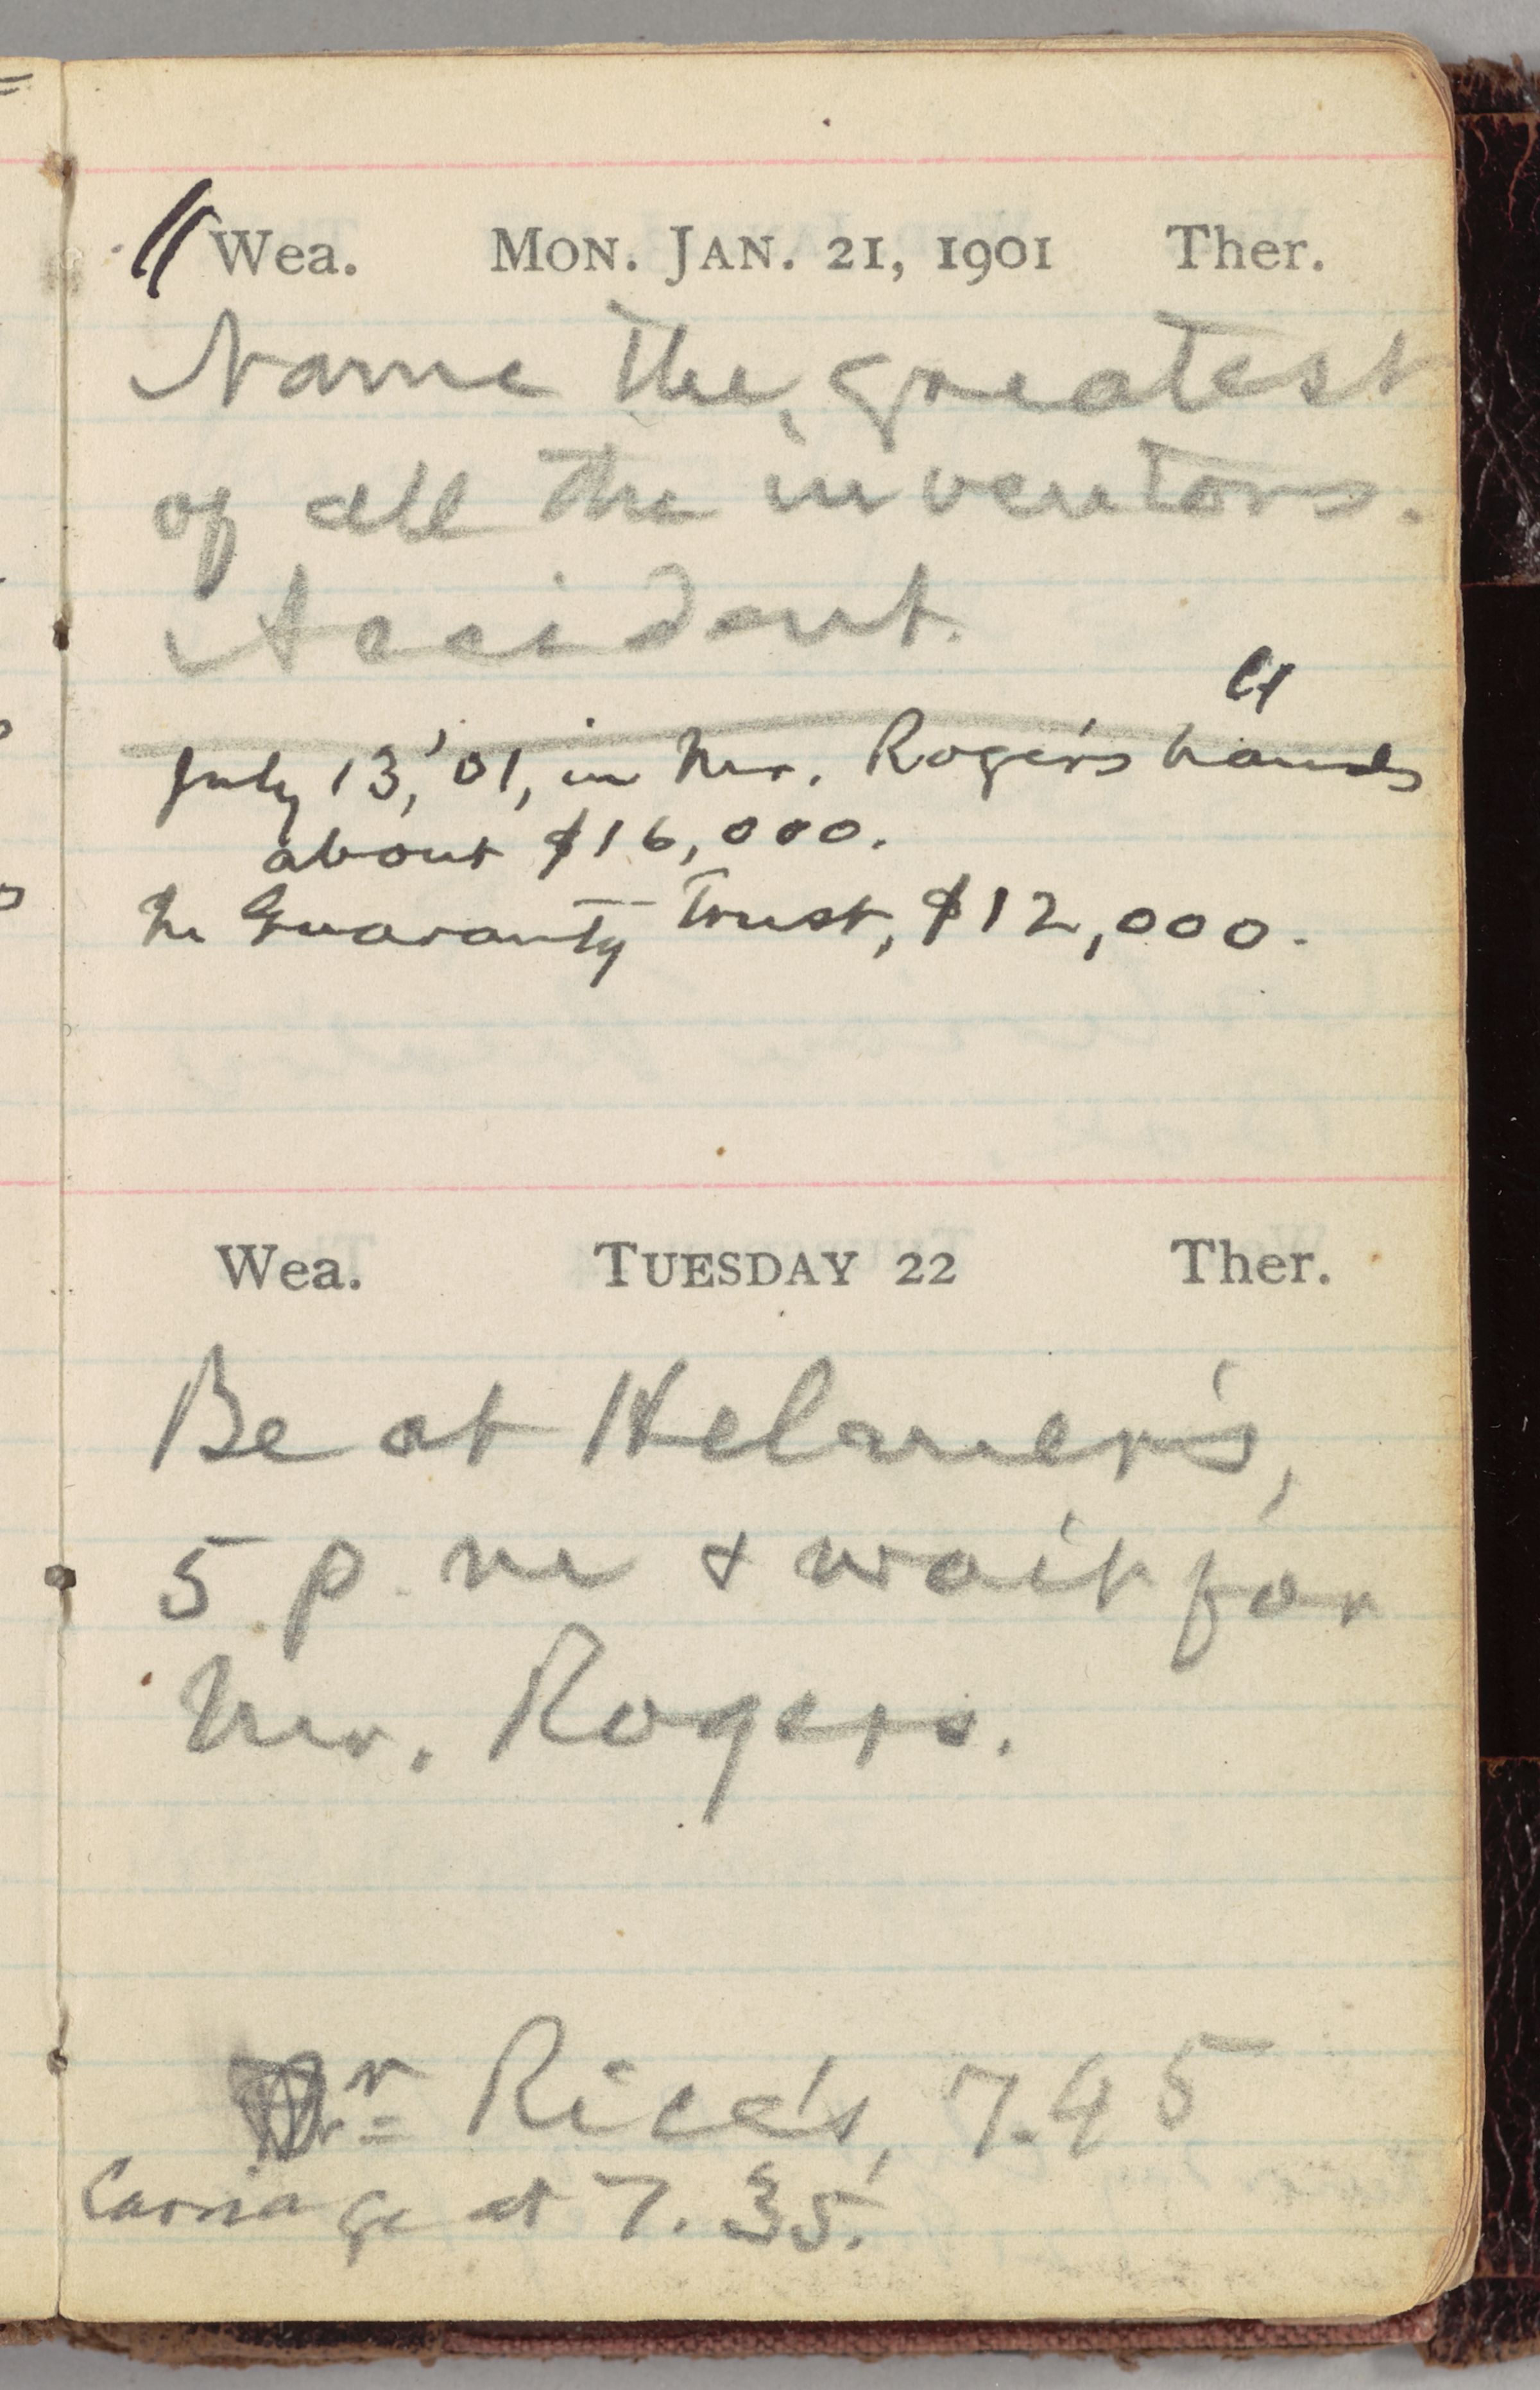 Wea. Mon. Jan. 21, 1901 Ther.
Name the greatest
of all the inventors.
Accident.
July 13, '01, in Mr. Roger's hands
about $16,000.
In Guaranty Trust, $12,000.
Wea. Tuesday 22 Ther.
Be at Helmer's,
5 p. m & wait for
Mr. Rogers.
Dr Rice's, 7.45
Carriage at 7.35.